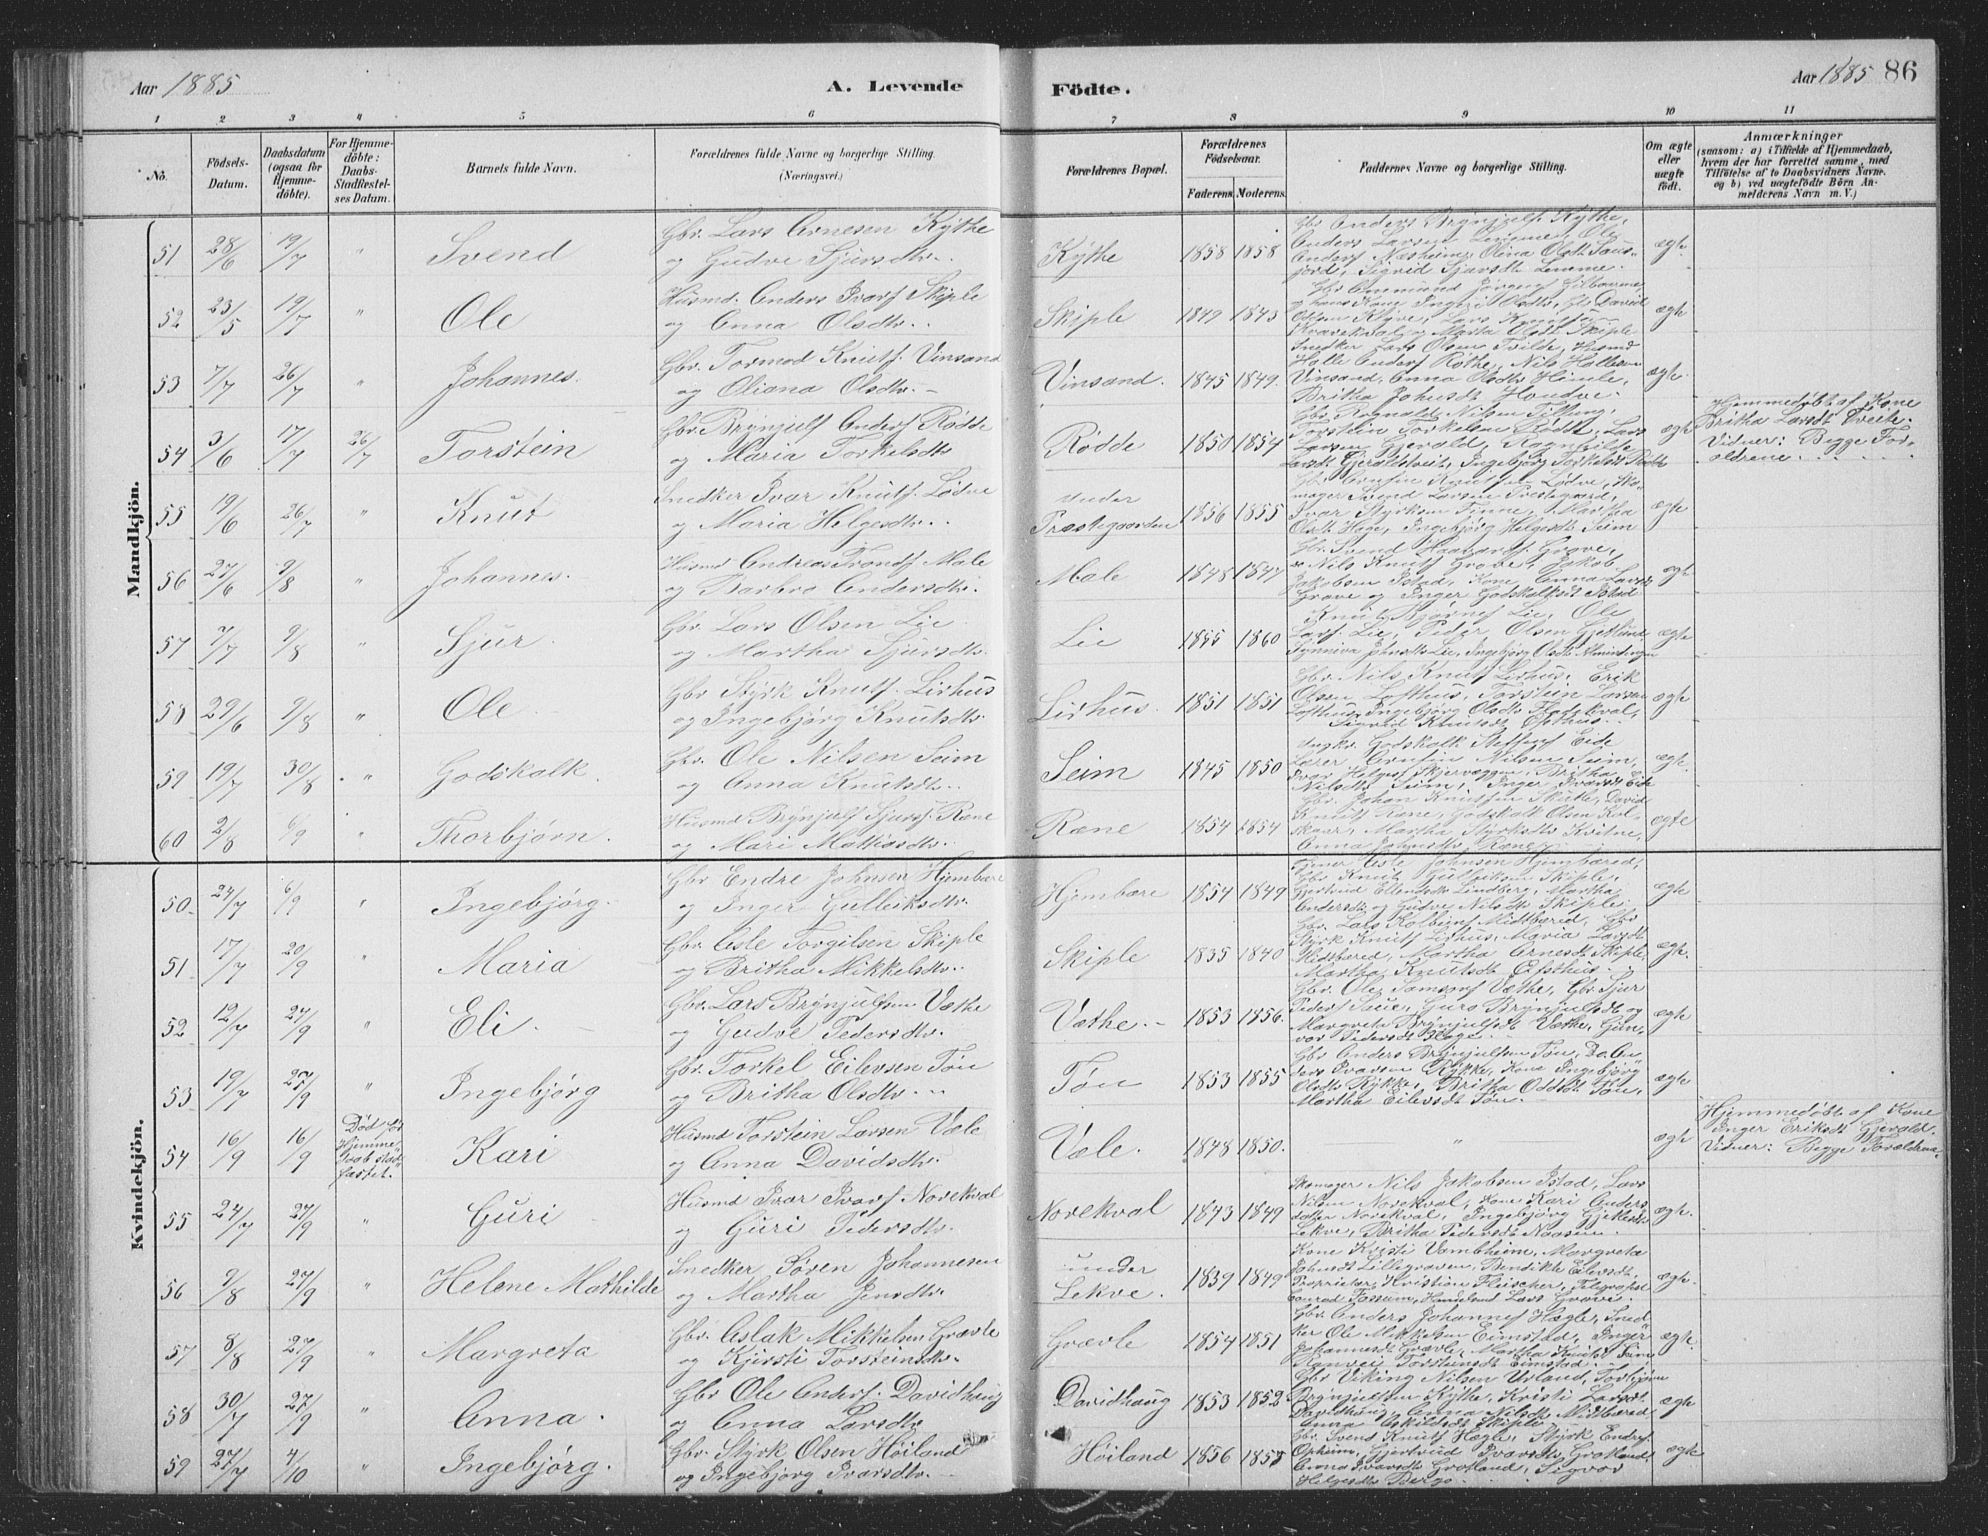 Aar 1885
A. Levende
Födte.
Aar 1885 86
1 2 3 4 5 6 7 8 9 10 11
No.
Födsels-
Datum.
Daabsdatum
(ogsaa for
Hjemme-
döbte).
For Hjemme-
döbte:
Daabs-
Stadfæstel-
ses Datum.
Barnets fulde Navn.
Forældrenes fulde Navne og borgerlige Stilling.
(Næringsvei.)
Forældrenes Bopæl.
Forældrenes
Födselsaar.
Faderens. Moderens.
Faddernes Navne og borgerlige Stilling.
Om ægte
eller
uægte
födt.
Anmærkninger
(saasom: a) i Tilfælde af Hjemmedaab,
hvem der har forrettet samme, med
Tilföielse af to Daabsvidners Navne.
og b) ved uægtefödte Börn An-
melderens Navn m. V.)
Mandkjön.
51 28/6 19/7 " Svend
Gbr. Lars Arnesen Kythe
og Gudve Sjursdtr.
Kythe 1858 1858
Gbr Anders Brynjulfs Kythe,
Anders Larsen Lemme, Ole
Anders Næsheim, Olina Olsdt
Sigrid Sjursdt Lemme.
ægt.
52 23/5 19/7 " Ole
Husmd. Anders Ivars Skiple
og Anna Olsdtr.
Skiple 1849 1843
ægte
Lars Knuts
og Martha Olsdt Skiple
53 7/7 26/7 " Johannes.
Gbr. Tormod Knuts. Vinsand
og Oliana Olsdtr.
Vinsand. 1845 1849.
Snedker Lars Olsen Tvilde, Husmd
Halle Anders Rothe, Nils Hallesen
Vinsand, Anna Olsdt Himle,
Britha Johnsdt Houdve.
ægte
54 3/6 17/7 26/7 Torstein
Gbr. Brynjulf Anders Rödde
og Maria Torkelsdtr.
Rödde 1850 1854
Gbr. Rognald Nilsen
Torstein Torkelsen Rödde, Lars
Larsen Gjerald, Ragnhilde
Larsdt Gjeraldstveit, Ingebjörg Torkelsdt Rödde
ægte
Hjemmedöbt af Kone
Britha Larsdt Tveite.
Vidner: Begge For-
ældrene.
55 19/6 26/7 " Knut
Snedker Ivar Knuts. Lödve
og Maria Helgesdtr.
under
Præstegaarden 1856 1855
Gbr Arnfin Knutsen Lödve, Sko-
mager Svend Larsen Prestegaard,
Ivar Styrksen Finne, Martha
Olsdt Hæge, Ingebjörg Helgesdt Seim
ægte
56 27/6 9/8 " Johannes.
Husmd Andreas Tronds. Male
og Barbro Andersdtr.
Male 1848 1847
Gbr. Svend Haavards. Grove,
Nils Knuts Grove, Jakob
Jakobsen Istad, Kone Anna Larsdt
Grove og Inger Godskalksdt Istad
ægte
57 7/7 9/8 " Sjur
Gbr. Lars Olsen Lie
og Martha Sjursdtr.
Lie 1855 1860
Knut Bjørnes Lie, Ole
Lars. Lie, Peder Olsen Gjetline
Synneva Johnsdtr Lie, Ingebjörg Olsdt Almindingen
ægte
58 29/6 9/8 " Ole
Gbr Styrk Knuts. Lirhus
og Ingebjörg Knutsdtr.
Lirhus. 1851 1851
Gbr. Nils Knuts Lirhus, Erik
Olsen Lofthus, Torstein Larsen
Lofthus, Ingebjörg Olsdt Flatekval,
Sigrid Knutsdt Ofsthus.
ægte
59 19/7 30/8 " Godskalk.
Gbr. Ole Nilsen Seim
og Anna Knutsdtr.
Seim 1845 1850
Ungkr. Godskalk Steffens Eide
Lærer Arnfin Nilsen Seim,
Ivar Helges Skjervæggen, Britha
Nilsdtr Seim, Inger Ivarsdt Eide
ægte.
60 2/8 6/9 " Thorbjørn.
Husmd Brynjulf Sjurs. Ræne
og Mari Mathiasdtr.
Ræne 1854 1854
Gbr. Johan Knutsen Skuthe, David
Knuts Ræne, Godskalk Olsen
Martha Styrksdt Kvitne,
Anna Johnsdtr Ræne.
ægte
Kvindekjön.
50 24/7 6/9 " Ingebjørg.
Gbr Endre Johnsen Hjembære
og Inger Gulleiksdtr.
Hjembære 1854 1849
Tjener Asle Johnsen Hjembæred,
Gbr. Knut Gulleiksen Skiple,
Gjertrud Ellendsdtr Lindberg, Martha
Andersdt og Gudve Nilsdt Skiple.
ægte
51 17/7 20/9 " Maria
Gbr. Asle Torgilsen Skiple
og Britha Mikkelsdtr.
Skiple 1835 1840
Gbr. Lars Kolbeins Midtbæred, Gbr
Styrk Knuts Lirhus, Maria Larsdt
Midtbæred, Martha Arnesdt Skiple,
Martha Knutsdt Ofsthus.
ægte.
52 12/7 27/9 " Eli.
Gbr. Lars Brynjulfsen Væthe
og Gudve Pedersdtr.
Væthe. 1853 1856.
Gbr. Ole Samsons Væthe, Gbr. Sjur
Peders Saue, Guro Brynjulfsdt og
Margreta Brynjulfsdt Væthe, Gun-
vor Pedersdt
ægte
53 19/7 27/9 " Ingebjørg
Gbr. Torkel Eilevsen Tøn
og Britha Olsdtr.
Tøn 1853 1855
Gbr Anders Brynjulfsen Tøn, Do An-
ders Ivarsen Rykke, Kone Ingebjörg
Olsdtr Rykke, Britha Oddsdt Tøn,
Martha Eilevsdt Tøn.
ægte
54 16/9 16/9 Död før
Hjemme-
daab stad-
fæstet.
Kari
Husmd Torstein Larsen Væle
og Anna Davidsdtr.
Væle. 1848 1850. "
ægte
Hjemmedöbt af Kone
Inger Eriksdt Gjerald.
Vidner: Begge Forældrene.
55 24/7 27/9 " Guri
Husmd Ivar Ivars Norekval
og Guri Pedersdtr.
Norekval 1843 1849
Skomager Nils Jakobsen Istad, Lars
Nilsen Norekval, Kone Kari Anders-
datter Norekval, Ingebjörg
Lekve, Britha Pedersdt Naasen.
ægte.
56 9/8 27/9 " Helene Mathilde
Snedker Søren Johannesen
og Martha Jensdtr.
under
Lekve. 1839 1849
Kone Kristi Vambheim, Margreta
Johnsdt Lillegraven, Bendikte Eilevsdt,
Proprietær Kristian Fleischer, Telegrafist
Conrad Fossum, Handelsmd Lars Grove.
ægte.
57 8/8 27/9 " Margreta
Gbr. Aslak Mikkelsen Grævle
og Kjersti Torsteinsdtr.
Grævle 1854 1851
Gbr. Anders Johannes Hægle, Sned-
ker Ole Mikkelsen Eimstad, Inger
Johannesdt Grævle, Martha Knutsdt
Ranvei Torsteinsdt Eimstad.
ægte.
58 30/7 27/9 " Anna.
Gbr Ole Anders. Davidhaug
og Anna Larsdtr
Davidhaug 1853 1852.
Gbr Viking Nilsen Urland, Torbjørn
Brynjulfsen Kythe, Kristi Larsdt
Davidhaug, Anna Nilsdt Midtbæred
Anna Eskildsdt Skiple.
ægte
59 27/7 4/10 " Ingebjørg.
Gbr. Styrk Olsen Höiland
og Ingebjørg Ivarsdtr.
Höiland 1856 1855
Gbr. Svend Knuts Hægle, Styrk Anders
Opheim, Gjertrud Ivarsdt Grotland,
Anna Ivarsdt Grotland, Sigvor
Helgesdt Berge.
ægte